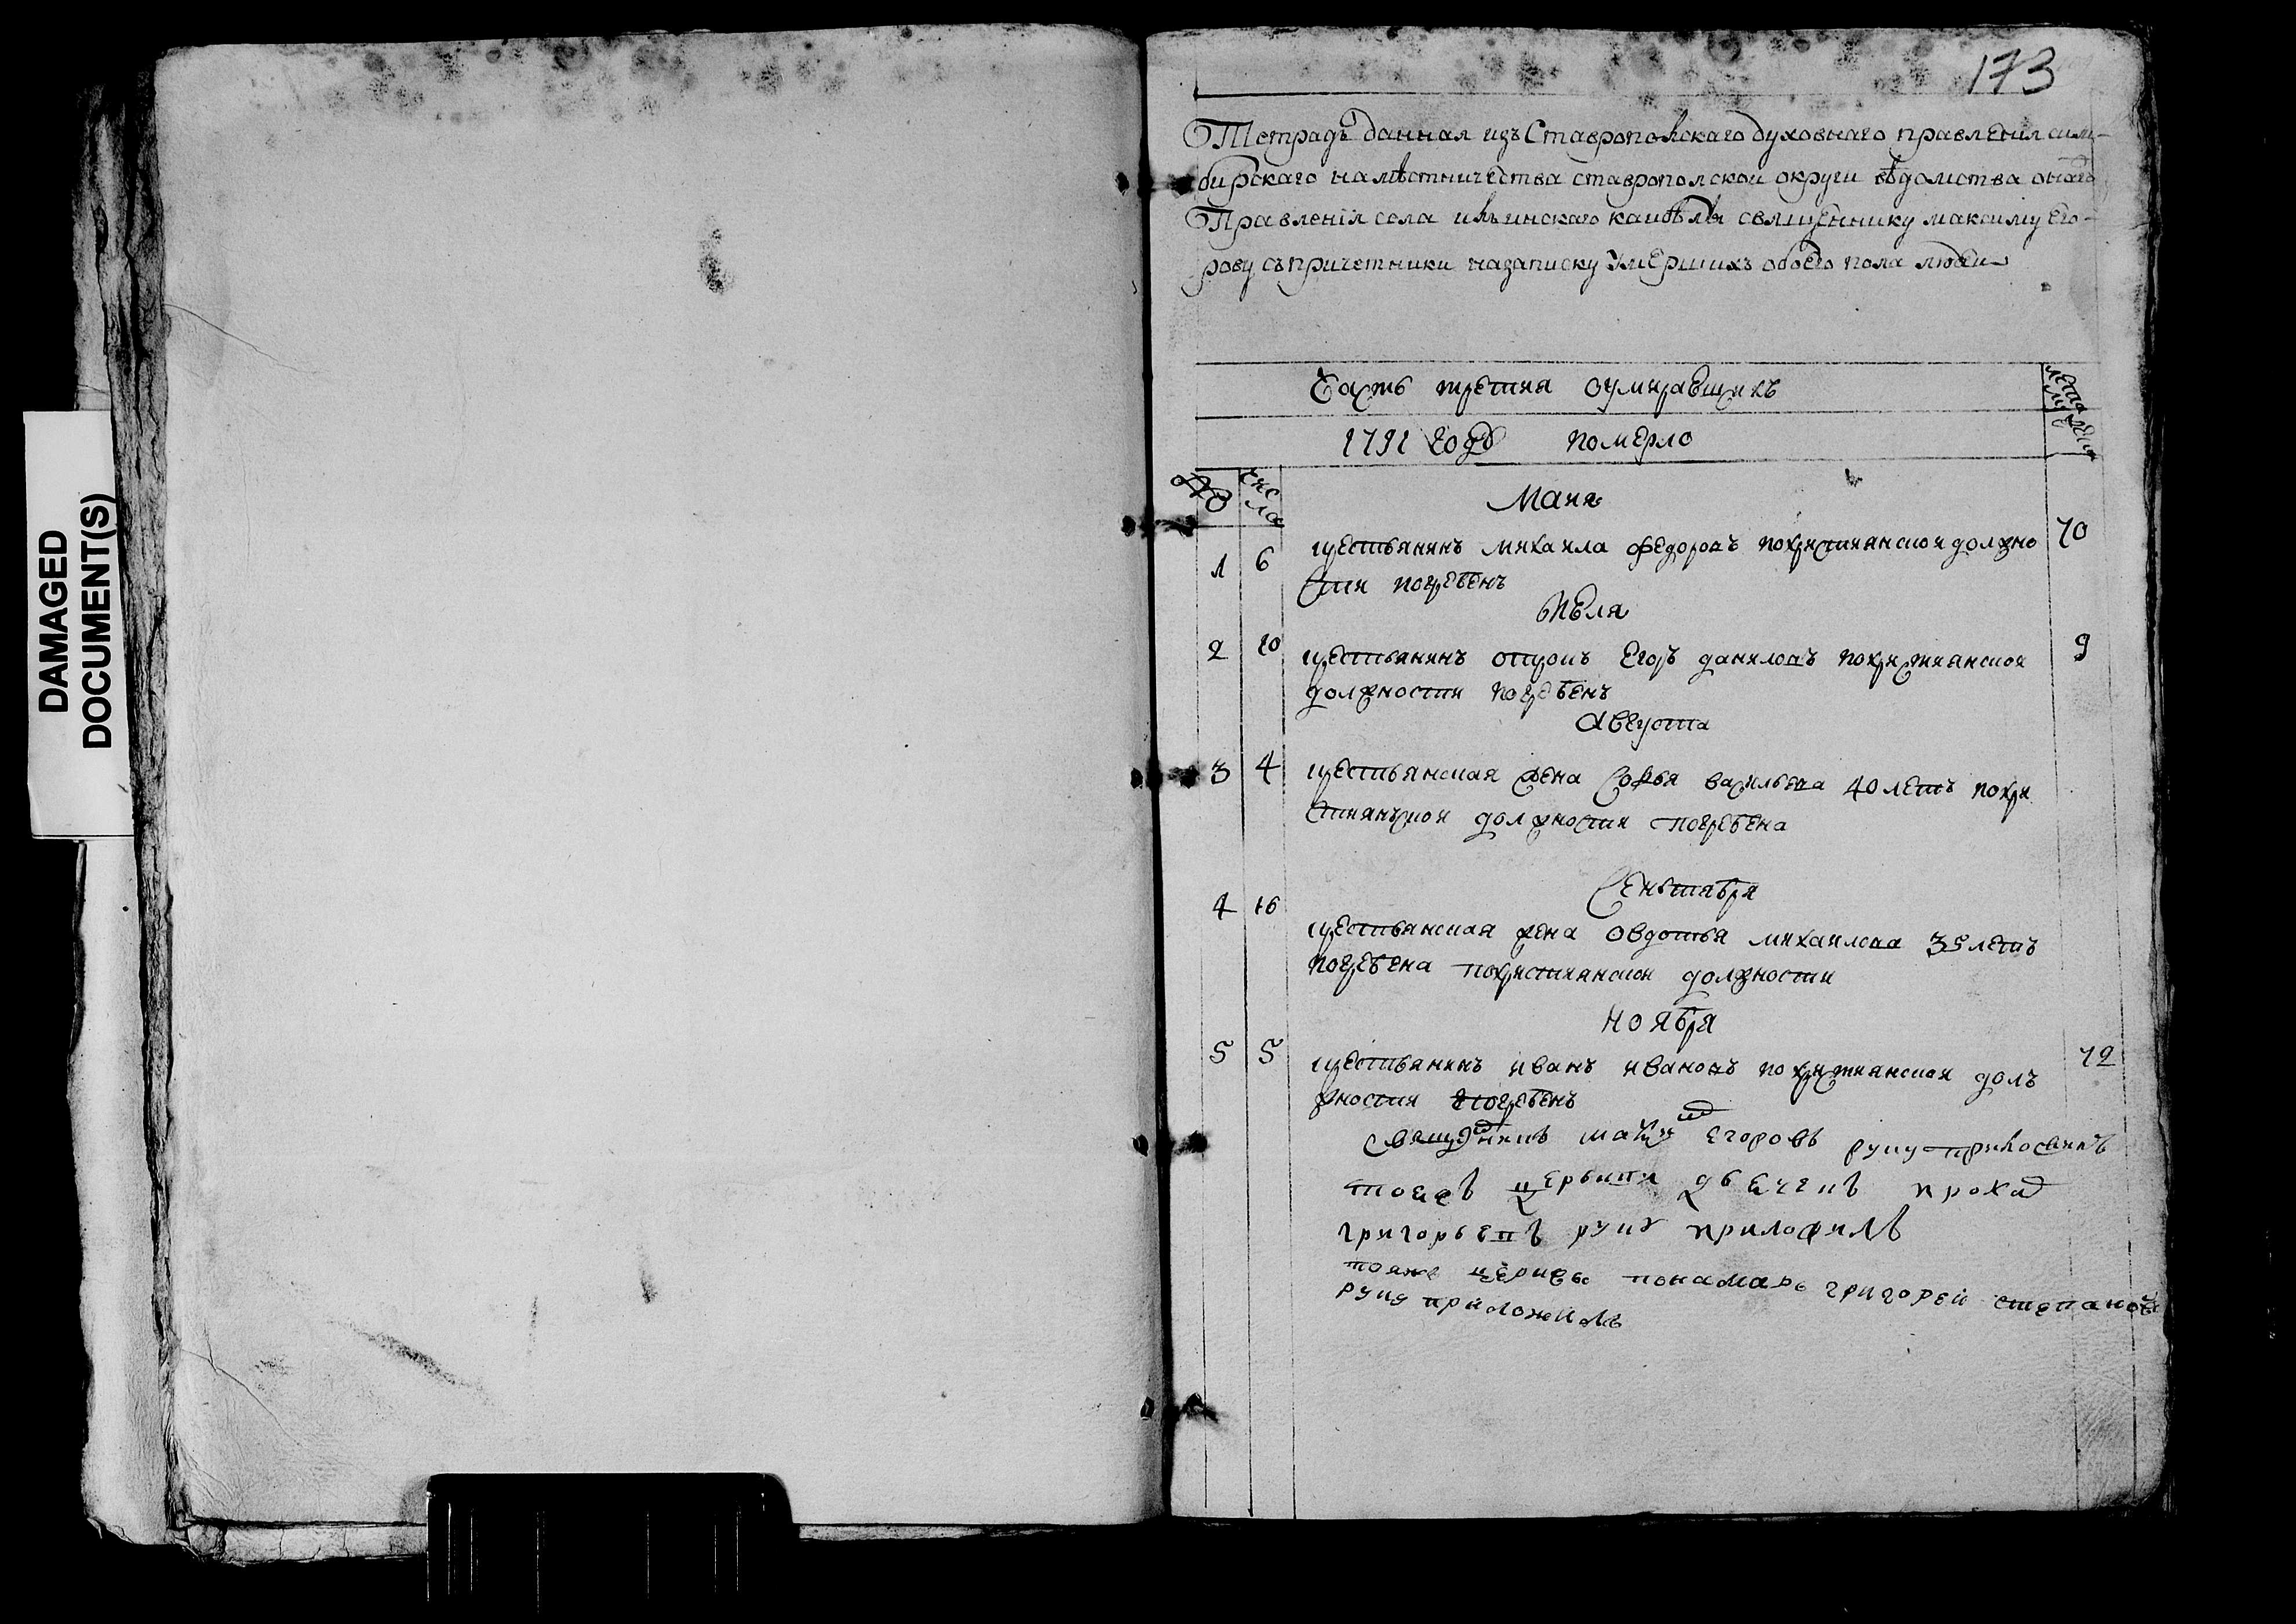 DAMAGED
DOCUMENT(S)
173
Тетрадь данная изъ Ставропольскаго духовнаго правления сим-
бирскаго наместничества ставрополской округи ведомства онаго
Правленія села ильинскаго священнику максиму его-
рову съ причетники на записку умершихъ обоего пола людеи
Часть третия оумираящихъ
лета
1791 годъ померло
№
число
Маия
1 6 крестьянинъ михаила федоровъ похристианскои должно 70
сти погребенъ
Июля
2 10 крестьянинъ отрокъ Егоръ даниловъ похристианскои 9
должности погребенъ
Августа
3 4 крестьянская жена Софья васильева 40 летъ похри
стиянской должности погребена
Сеньтября
4 16 крестьянская жена овдотья михаилова 35 летъ
погребена похристианскои должности
Ноября
5 5 крестьянинъ иванъ ивановъ похристианскои долъ 72
жности погребенъ
священникъ максим егоровъ руку приложилъ
тоежъ церькви дьечекъ
григорьевъ руку приложилъ
тояже церкви понамарь григорей степановъ
руку приложилъ